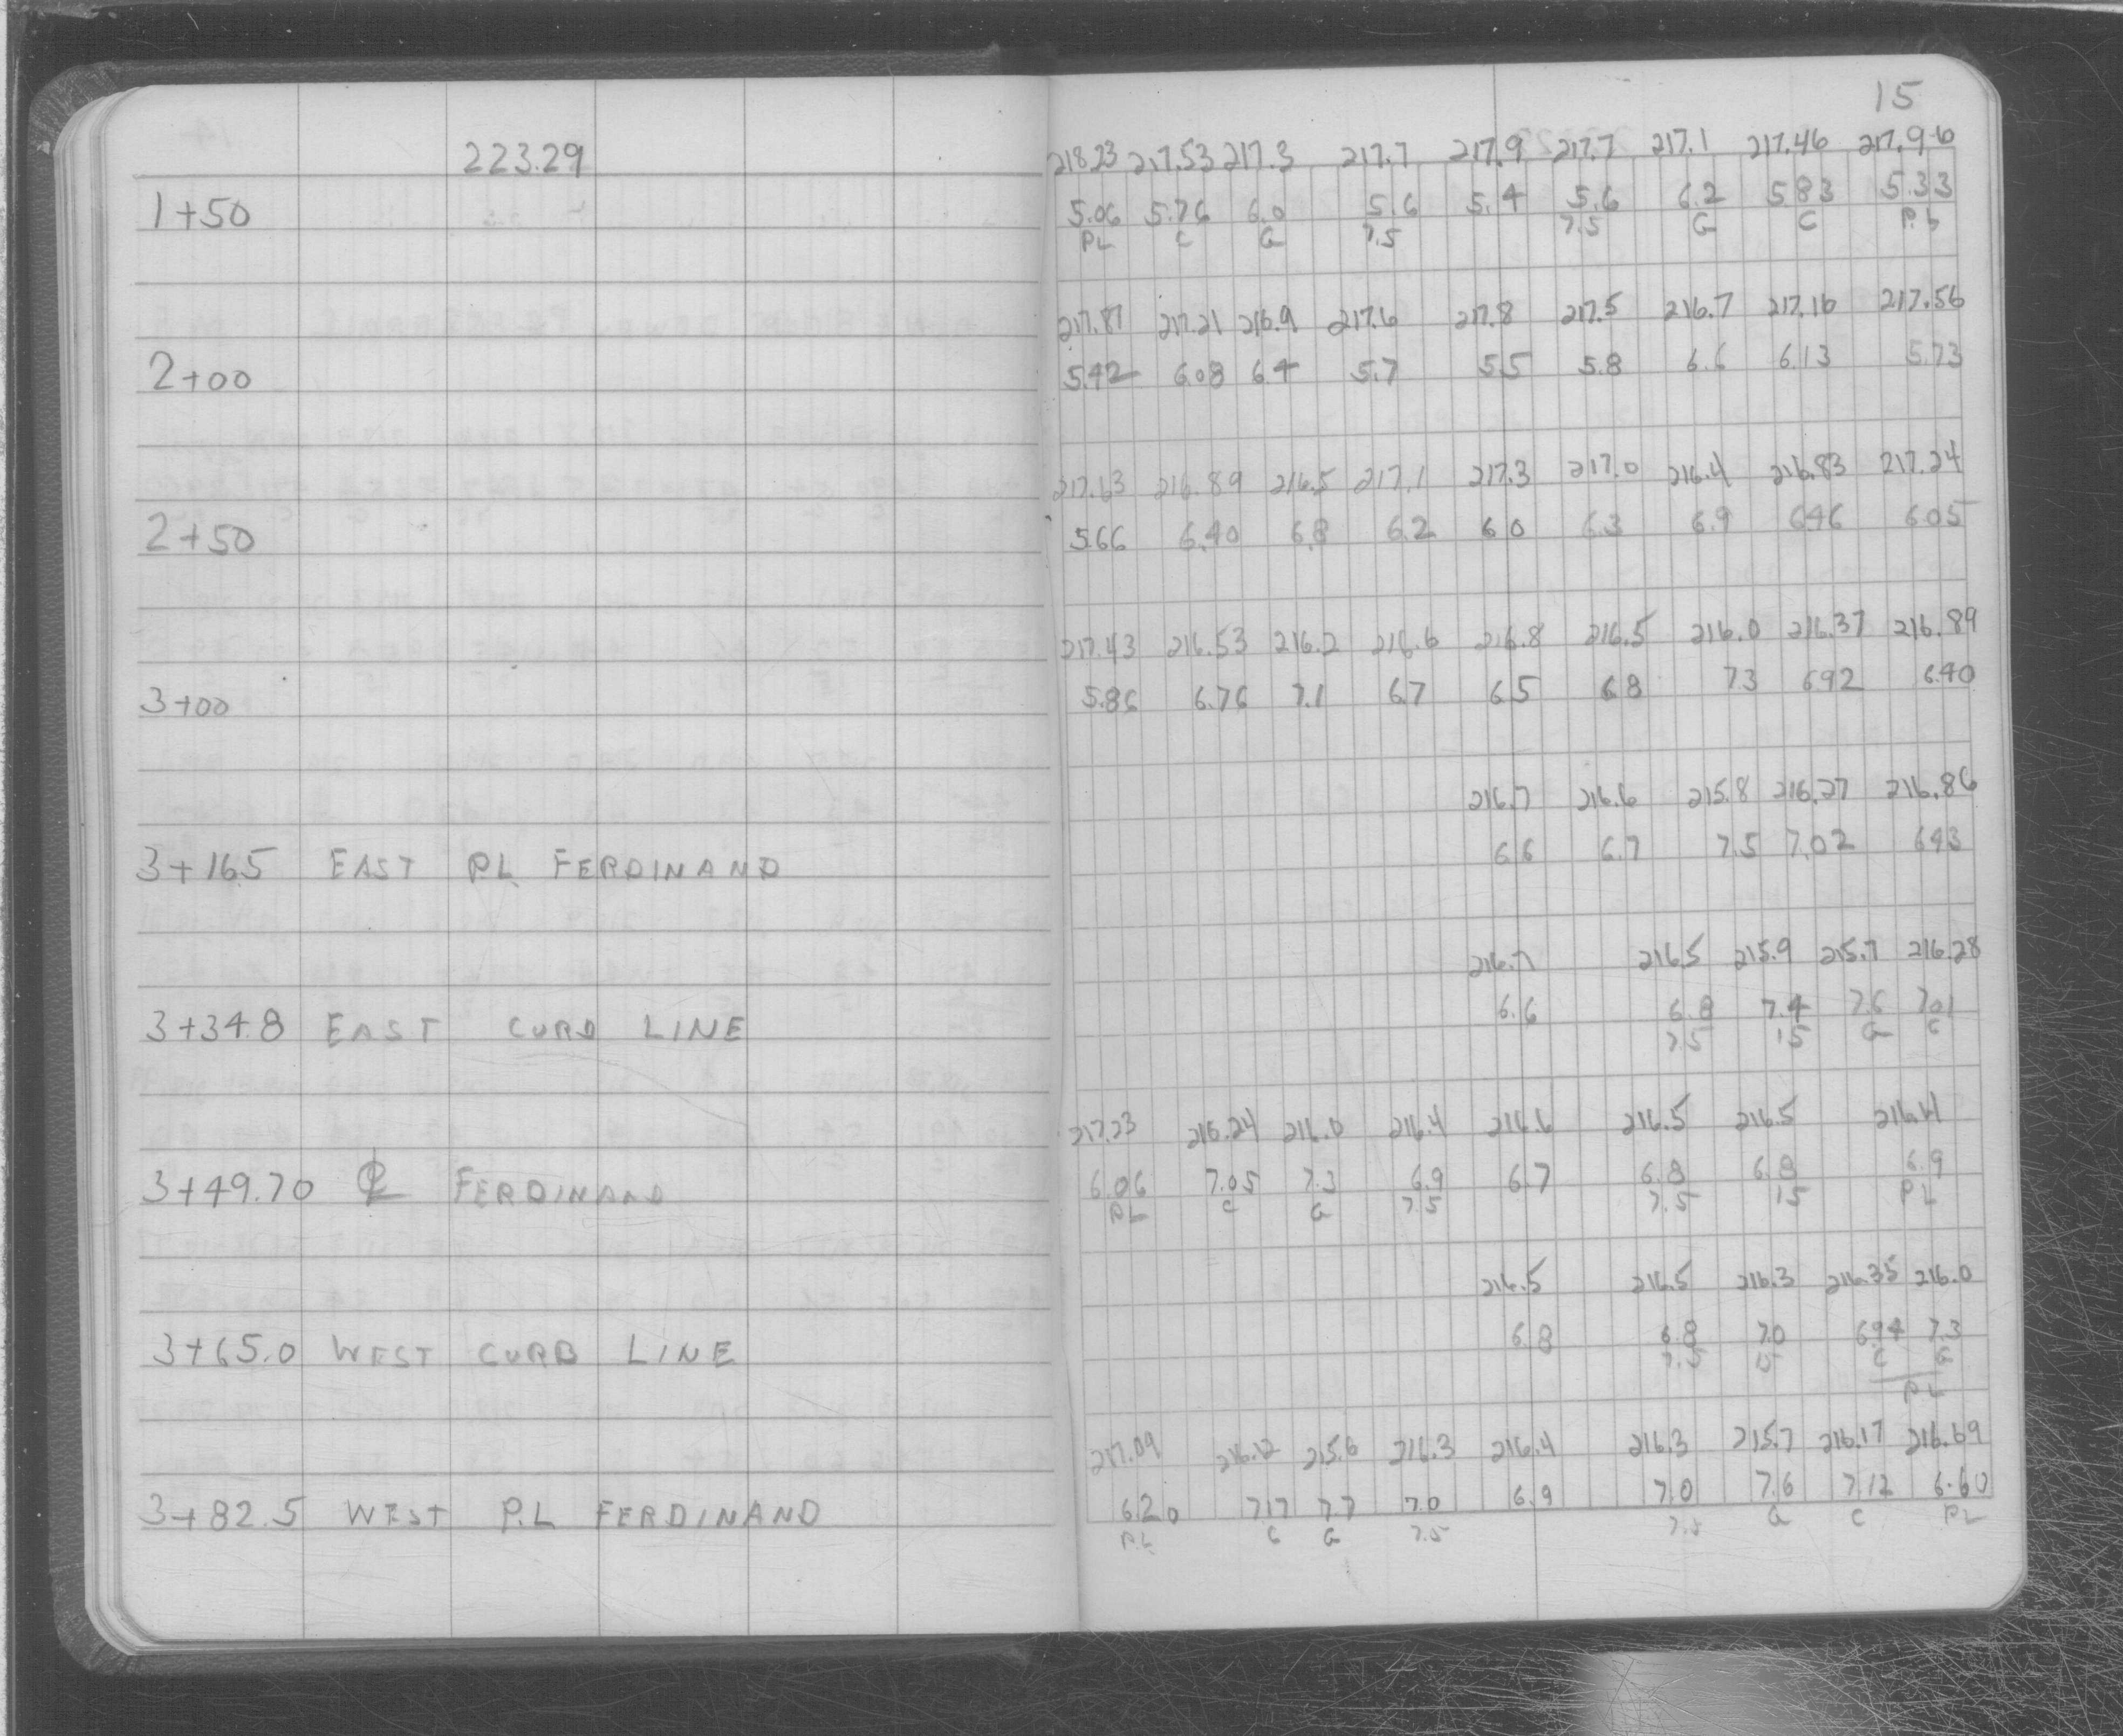 15
223.29 218.23 217.53 217.3 217.7 217.9 217.7 217.1 217.46 217.96
1+50 5.06 5.76 6.0 5.6 5.4 5.6 6.2 5.83 5.33
PL C G 7.5 7.5 G C P.L
217.87 217.21 216.9 217.6 217.8 217.5 216.7 217.16 217.56
2+00 5.42 6.08 6.4 5.7 5.5 5.8 6.6 6.13 5.73
217.63 216.89 216.5 217.1 217.3 217.0 216.4 216.83 217.24
2+50 5.66 6.40 6.8 6.2 6.0 6.3 6.9 6.46 6.05
217.43 216.53 216.2 216.6 216.8 216.5 216.0 216.37 216.89
3+00 5.86 6.76 7.1 6.7 6.5 6.8 7.3 6.92 6.40
216.7 216.6 215.8 216.27 216.86
3+16.5 EAST PL FERDINAND 6.6 6.7 7.5 7.02 6.43
216.7 216.5 215.9 215.7 216.28
3+34.8 EAST CURB LINE 6.6 6.8 7.4 7.6 7.01
7.5 15 G C
217.23 216.24 216.0 216.4 216.6 216.5 216.5 216.4
3+49.70 ℄ FERDINAND 6.06 7.05 7.3 6.9 6.7 6.8 6.8 6.9
PL C G 7.5 7.5 15 PL
216.5 216.5 216.3 216.35 216.0
3+65.0 WEST CURB LINE 6.8 6.8 7.0 6.94 7.3
7.5 15 C G
PL
217.09 216.12 215.6 216.3 216.4 216.3 215.7 216.17 216.69
3+82.5 WEST P.L FERDINAND 6.20 7.17 7.7 7.0 6.9 7.0 7.6 7.12 6.60
P.L C G 7.5 7.5 G C PL